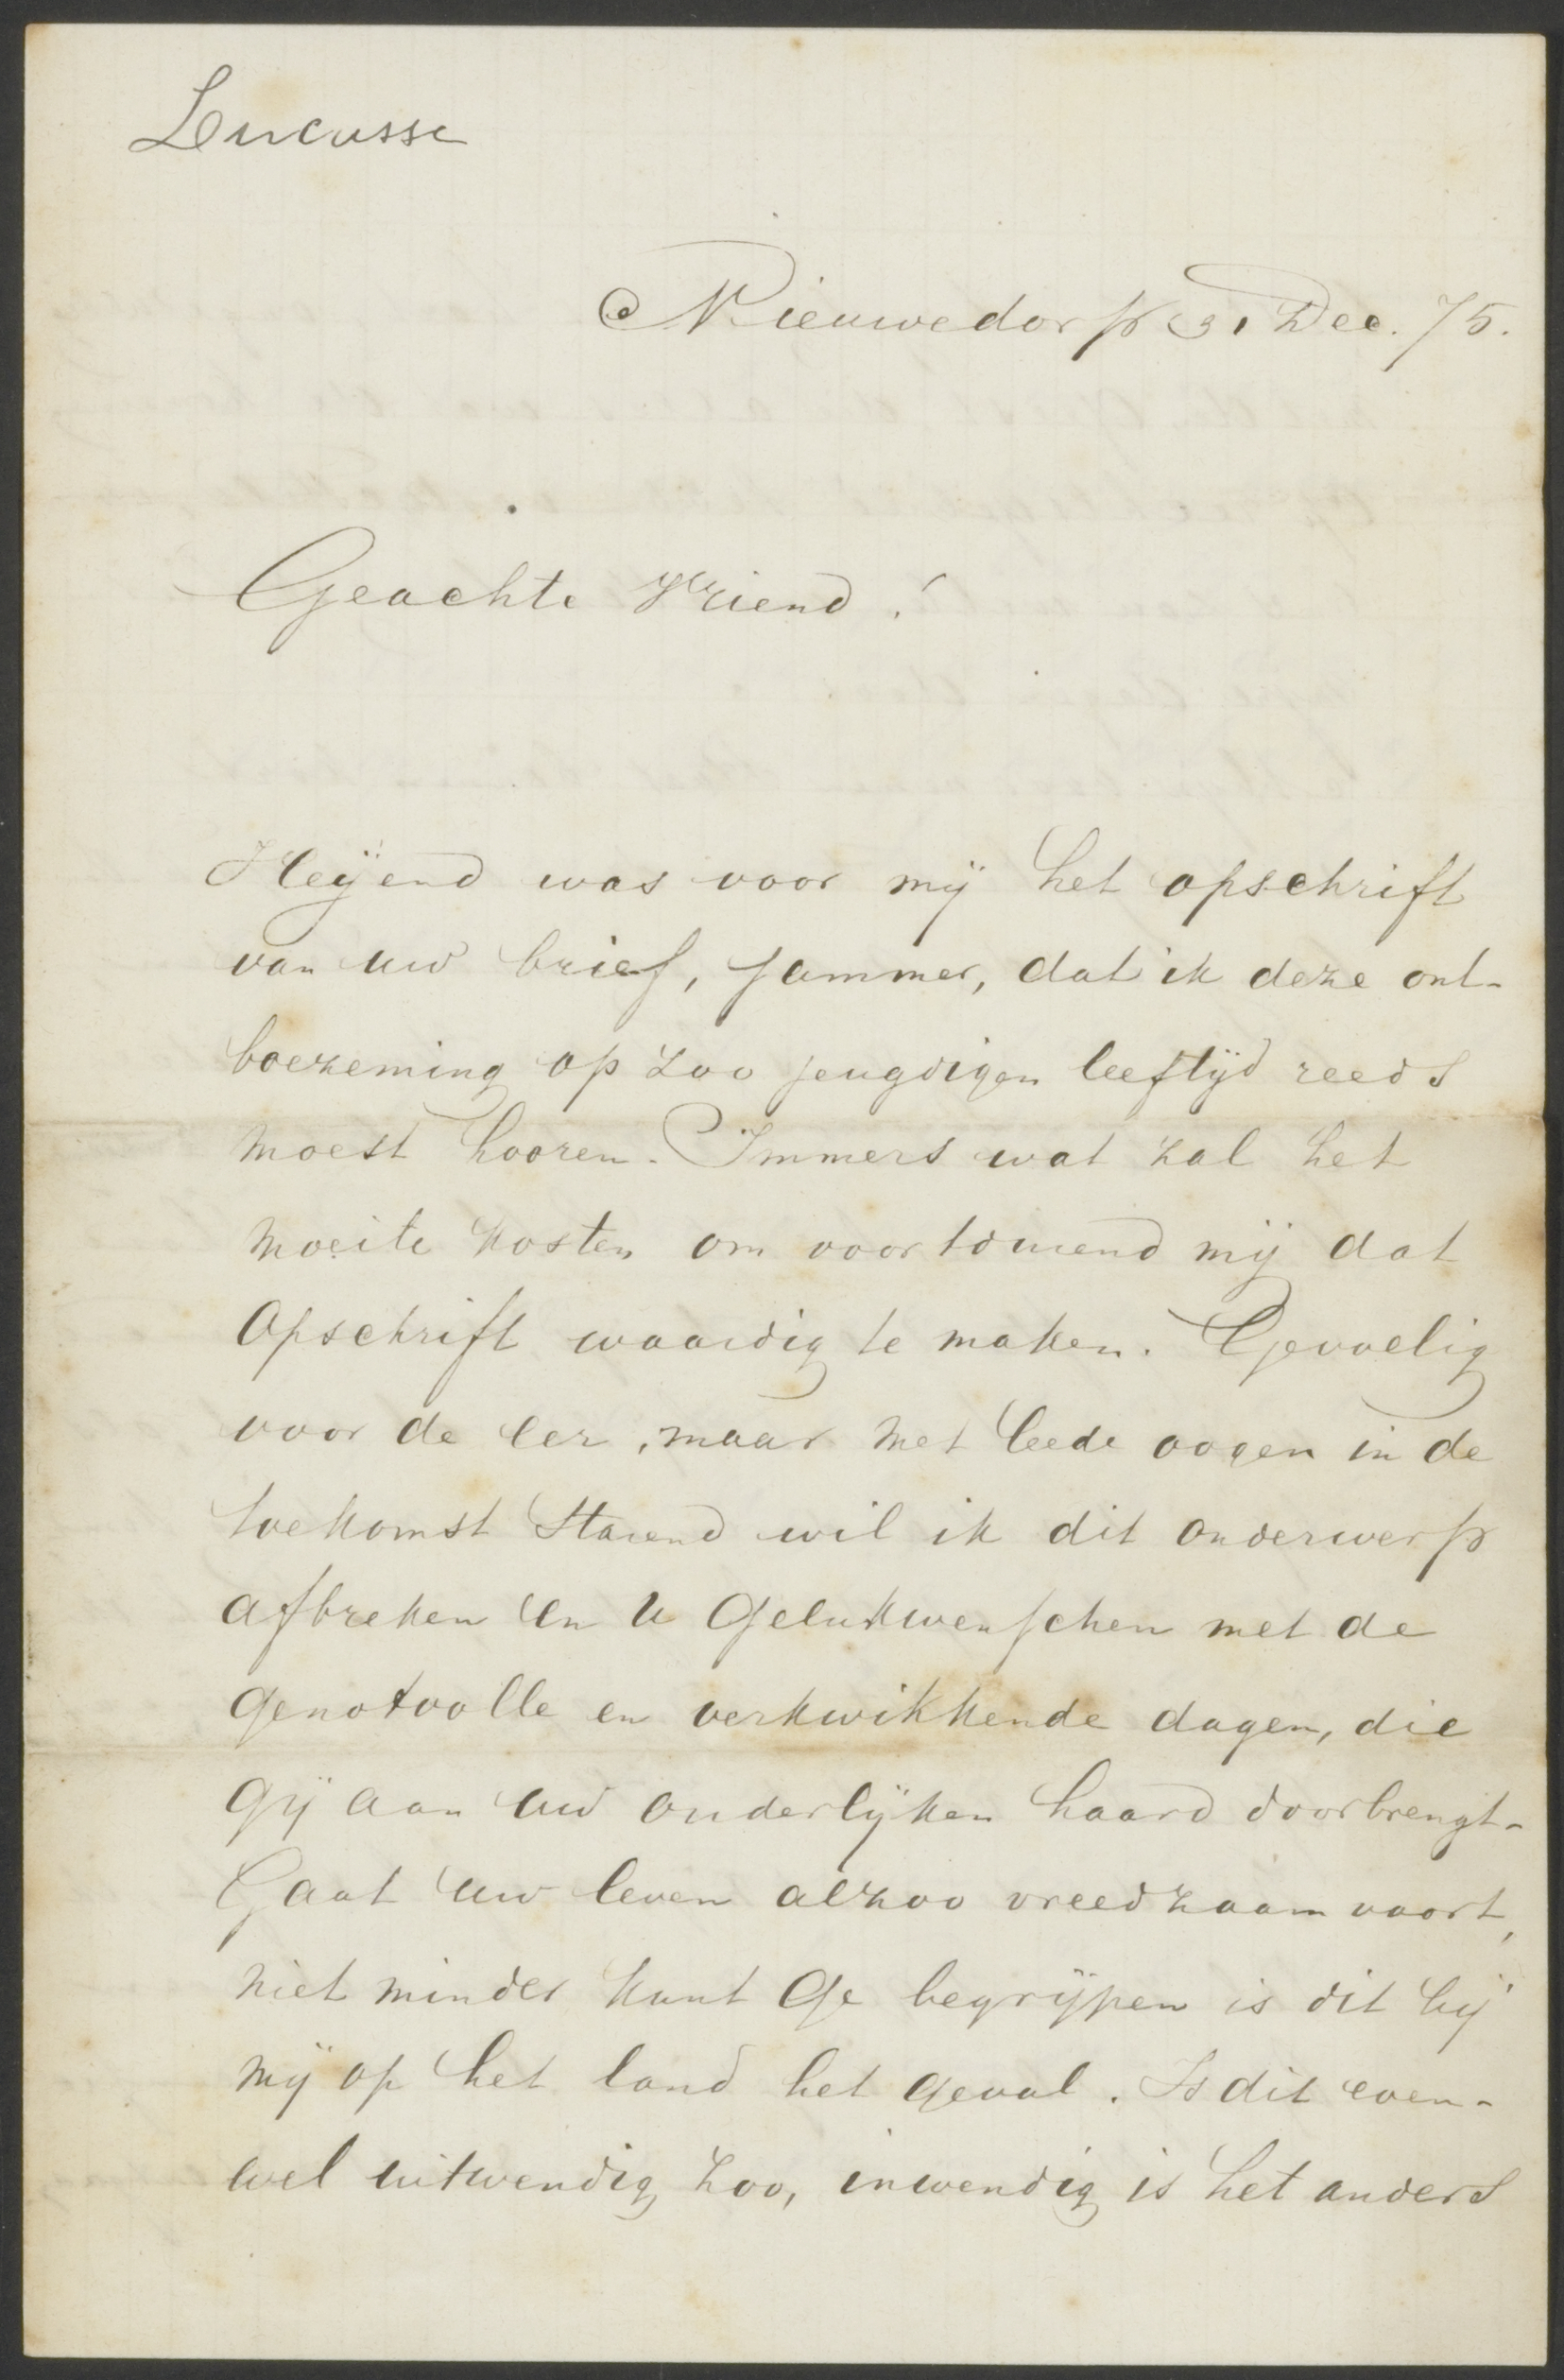 Lucasse
Nieuwedorp 31 Dec. 75.
Geachte Vriend!
Vleijend was voor mij het opschrift
van uw brief, jammer, dat ik deze ont-
boezeming op zoo jeugdigen leeftijd reeds
moest hooren. Immers wat zal het
moeite kosten om voortdurend mij dat
opschrift waardig te maken. Gevoelig
voor de eer, maar met leede oogen in de
toekomst starend wil ik dit onderwerp
afbreken en u gelukwenschen met de
genotvolle en verkwikkende dagen, die
gij aan uw ouderlijken haard doorbrengt.
Gaat uw leven alzoo vreedzaam voort,
niet minder kunt ge begrijpen is dit bij
mij op het land het geval. Is dit even-
wel uitwendig zoo, inwendig is het anders